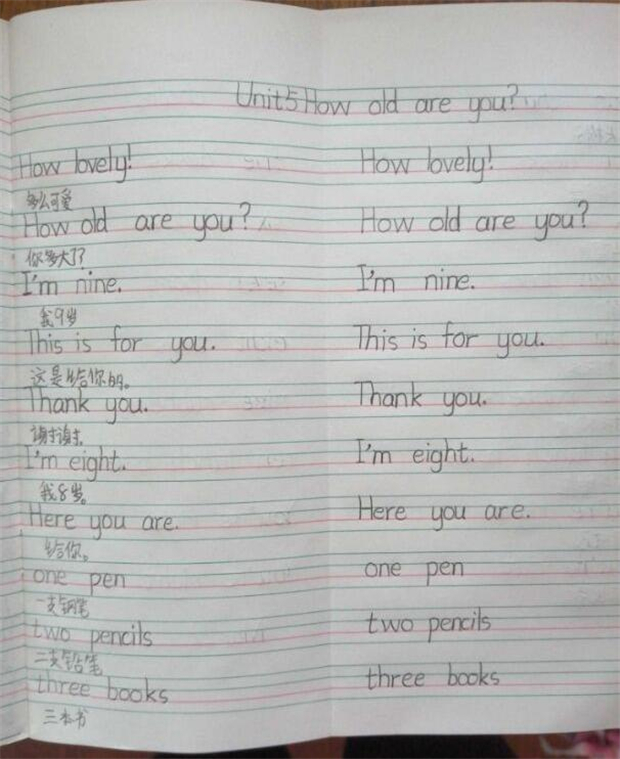 Unit5 How old are you?
How lovely! How lovely!
多么可爱
How old are you? How old are you?
你多大了?
I'm nine. I'm nine.
我9岁
This is for you. This is for you.
这是给你的。
Thank you. Thank you.
谢谢。
I'm eight. I'm eight.
我8岁。
Here you are. Here you are.
给你。
one pen one pen
一支钢笔
two pencils two pencils
二支铅笔
three books three books
三本书